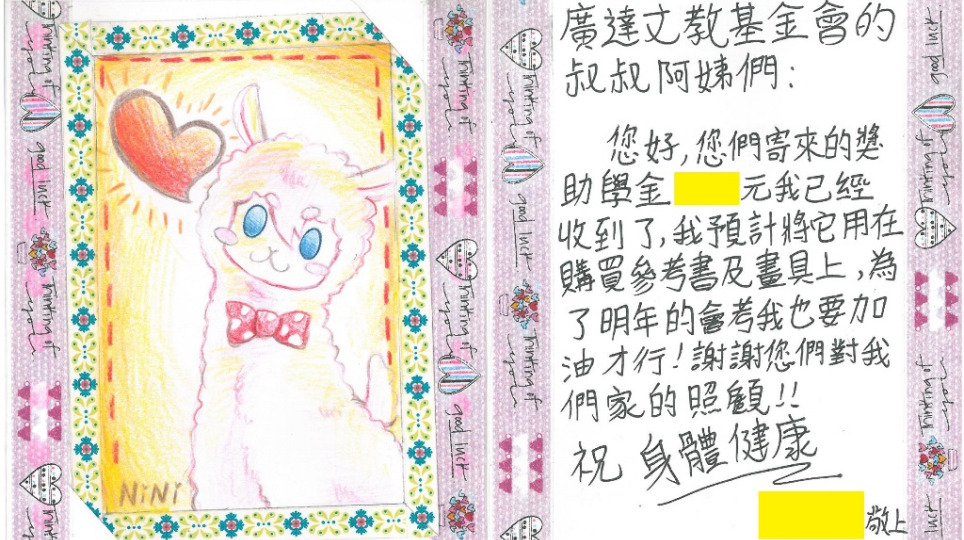 NiNi
廣達文教基金會的
叔叔阿姨們：
您好，您們寄來的獎
助學金 元我已經
收到了，我預計將它用在
購買參考書及畫具上，為
了明年的會考我也要加
油才行！謝謝您們對我
們家的照顧！！
祝 身體健康
敬上
Thinking of
you
good luck
Thinking of
you
good luck
Thinking of
you
good luck
Thinking of
you
good luck